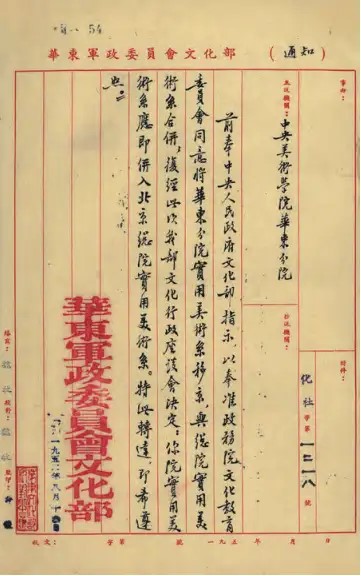 華東軍政委員會文化部
（通知）
事由：
主送機關：中央美術學院華東分院
抄送機關：
附件：
化社字第一二一八號
前奉中央人民政府文化部指示，以奉准政務院文化教育
委員會同意將華東分院實用美術系移京與總院實用美
術系合併，復經此次我部文化行政座談會決定：你院實用美
術系應即併入北京總院實用美術系。特此轉達，即希遵
照。
華東軍政委員會文化部
收文：字第號一九五年月日